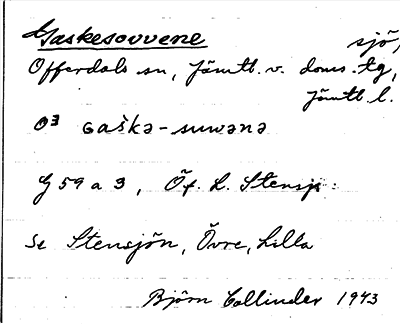 Gaskesovvene sjö,
Offerdals sn, Jämtl. v. doms. tg,
Jämtl l.
O3 Gaškə-suwənə
G 59 a 3, Öf. L. Stensj:
Se Stensjön, Övre, Lilla
Björn Collinder 1943